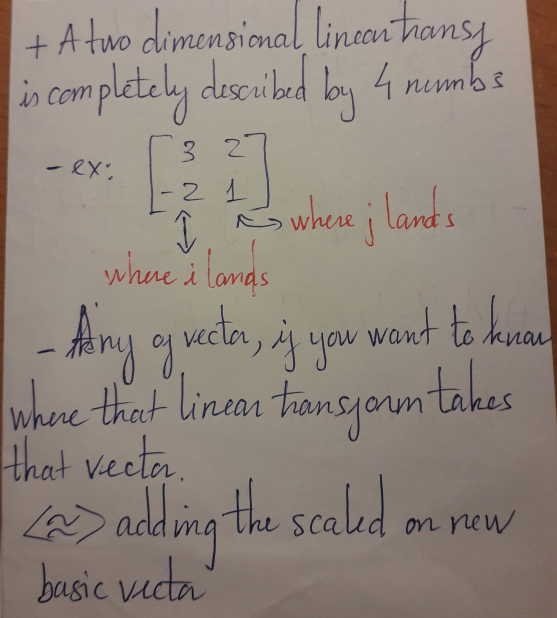 + A two dimensional linear transf
is completely described by 4 numbs
- ex: [ 3 2
-2 1 ]
where j lands
where i lands
- Any of vector, if you want to know
where that linear transform takes
that vector.
<≈> adding the scaled on new
basic vector